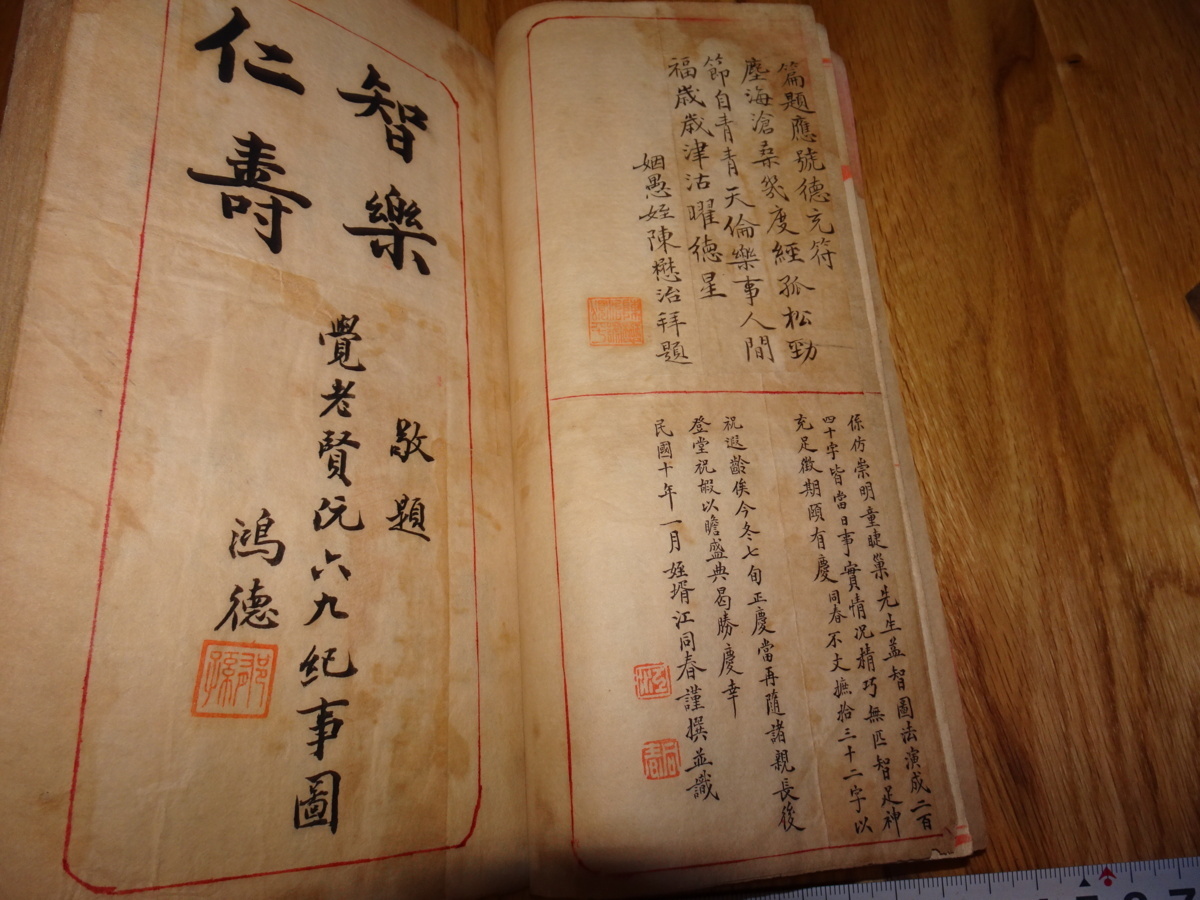 篇題應號德充符
塵海滄桑幾度經孤松勁
節自青青天倫樂事人間
福歲歲津沽曜德星
姻愚姪陳懋治拜題
係仿崇明童睫巢先生益智圖法演成二百
四十字皆當日事實情況精巧無匹智足神
充足徵期頤有慶同春不文摭拾三十二字以
祝遐齡俟今冬七旬正慶當再隨諸親長後
登堂祝嘏以瞻盛典曷勝慶幸
民國十年一月姪壻江同春謹撰並識
智樂
仁壽
敬題
覺老賢沅六九紀事圖
鴻德